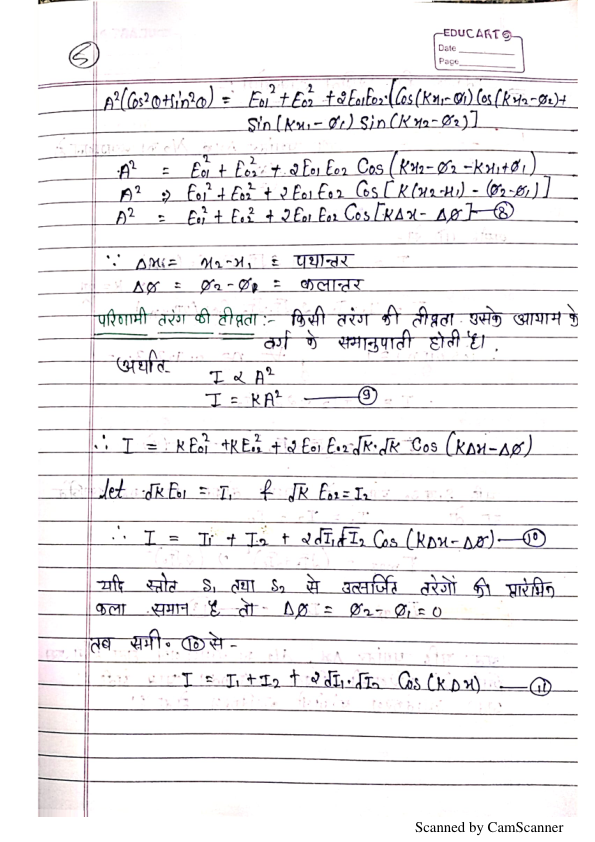 5
EDUCART
Date
Page
A²(Cos²θ+Sin²θ) = E₀₁² + E₀₂² + 2E₀₁E₀₂.[Cos(Kx₁-Ø₁) Cos(Kx₂-Ø₂)+
Sin(Kx₁-Ø₁) Sin(Kx₂-Ø₂)]
A² = E₀₁² + E₀₂² + 2E₀₁ E₀₂ Cos (Kx₂-Ø₂-Kx₁+Ø₁)
A² => E₀₁² + E₀₂² + 2E₀₁ E₀₂ Cos [K(x₂-x₁) - (Ø₂-Ø₁)]
A² = E₀₁² + E₀₂² + 2E₀₁ E₀₂ Cos [KΔx - ΔØ] — ⑧
∵ Δx = x₂-x₁ = पथान्तर
ΔØ = Ø₂-Ø₁ = कलान्तर
परिणामी तरंग की तीव्रता :- किसी तरंग की तीव्रता उसके आयाम के
वर्ग के समानुपाती होती है।
अर्थात
I ∝ A²
I = KA² — ⑨
∴ I = KE₀₁² + KE₀₂² + 2 E₀₁ E₀₂ √K.√K Cos (KΔx-ΔØ)
let √K E₀₁ = I₁ & √K E₀₂ = I₂
∴ I = I₁ + I₂ + 2√I₁√I₂ Cos (KΔx-ΔØ) — ⑩
यदि स्त्रोत S₁ तथा S₂ से उत्सर्जित तरंगों की प्रारंभिक
कला समान है तो ΔØ = Ø₂-Ø₁ = 0
तब समी. ⑩ से -
I = I₁ + I₂ + 2√I₁.√I₂ Cos (KΔx) — ⑪
Scanned by CamScanner